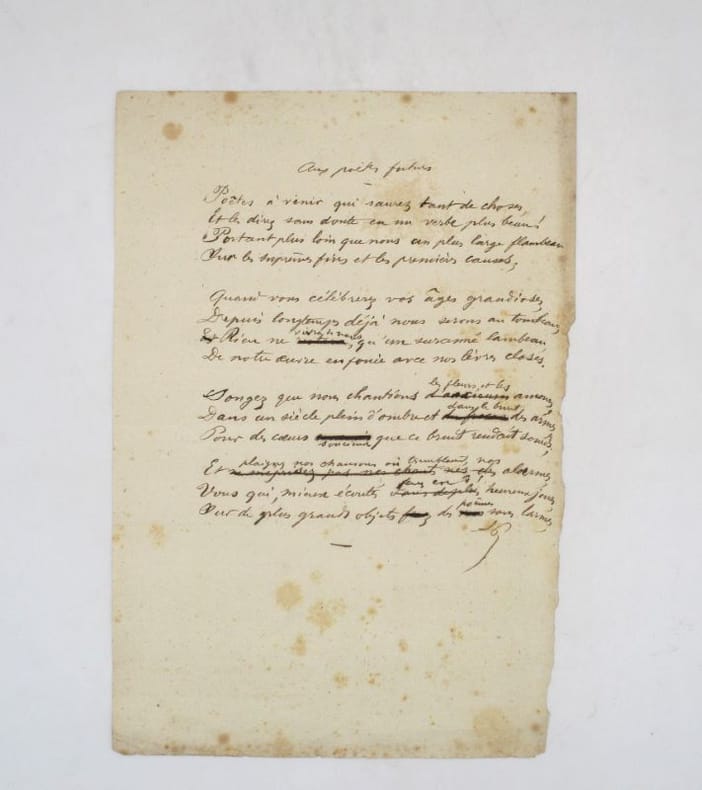 Aux poètes futurs
Poëtes à venir qui saurez tant de choses,
Et les direz sans doute en un verbe plus beau,
Portant plus loin que nous un plus large flambeau
Sur les suprêmes fins et les premières causes,
Quand vous célébrerez vos âges grandioses,
Depuis longtemps déjà nous serons au tombeau,
vivra de nous
Et Rien ne, qu'un suranné lambeau
De notre œuvre enfouie avec nos lèvres closes.
les fleurs et les
Songez que nous chantions amours
dans le bruit
Dans un siècle plein d'ombre et des armes,
Pour des cœurs que ce bruit rendait sourds;
soucieux
plaignez nos chansons où tremblaient nos
Et ne méprisez pas nos chants nés des alarmes,
faites en
Vous qui, mieux écoutés, heureux jours,
poèmes
Sur de plus grands objets des sans larmes